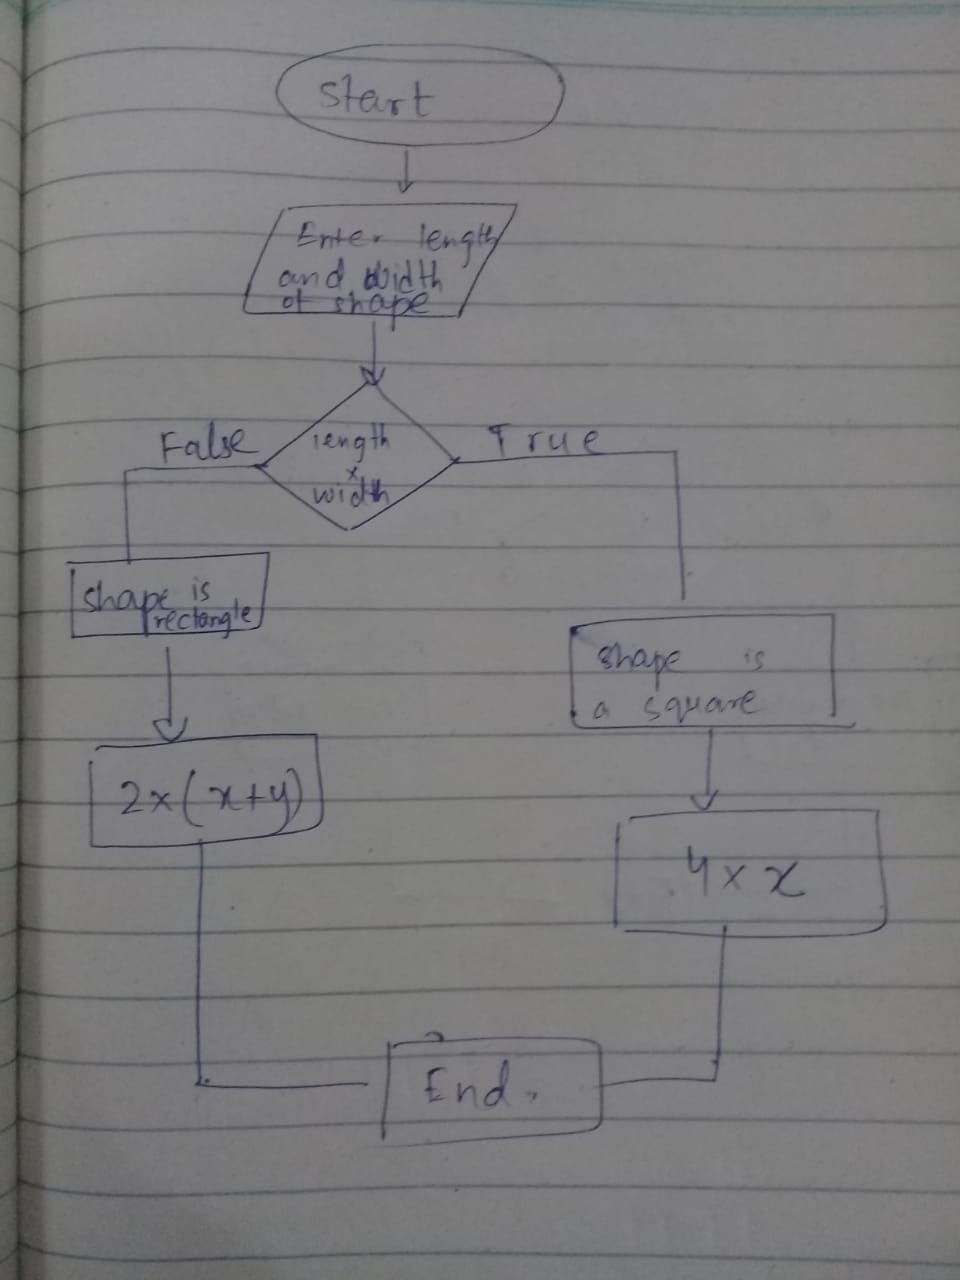 Start
Enter length
and width
of shape
False
length
x
width
True
shape is
rectangle
shape is
a square
2x(x+y)
4 x x
End.